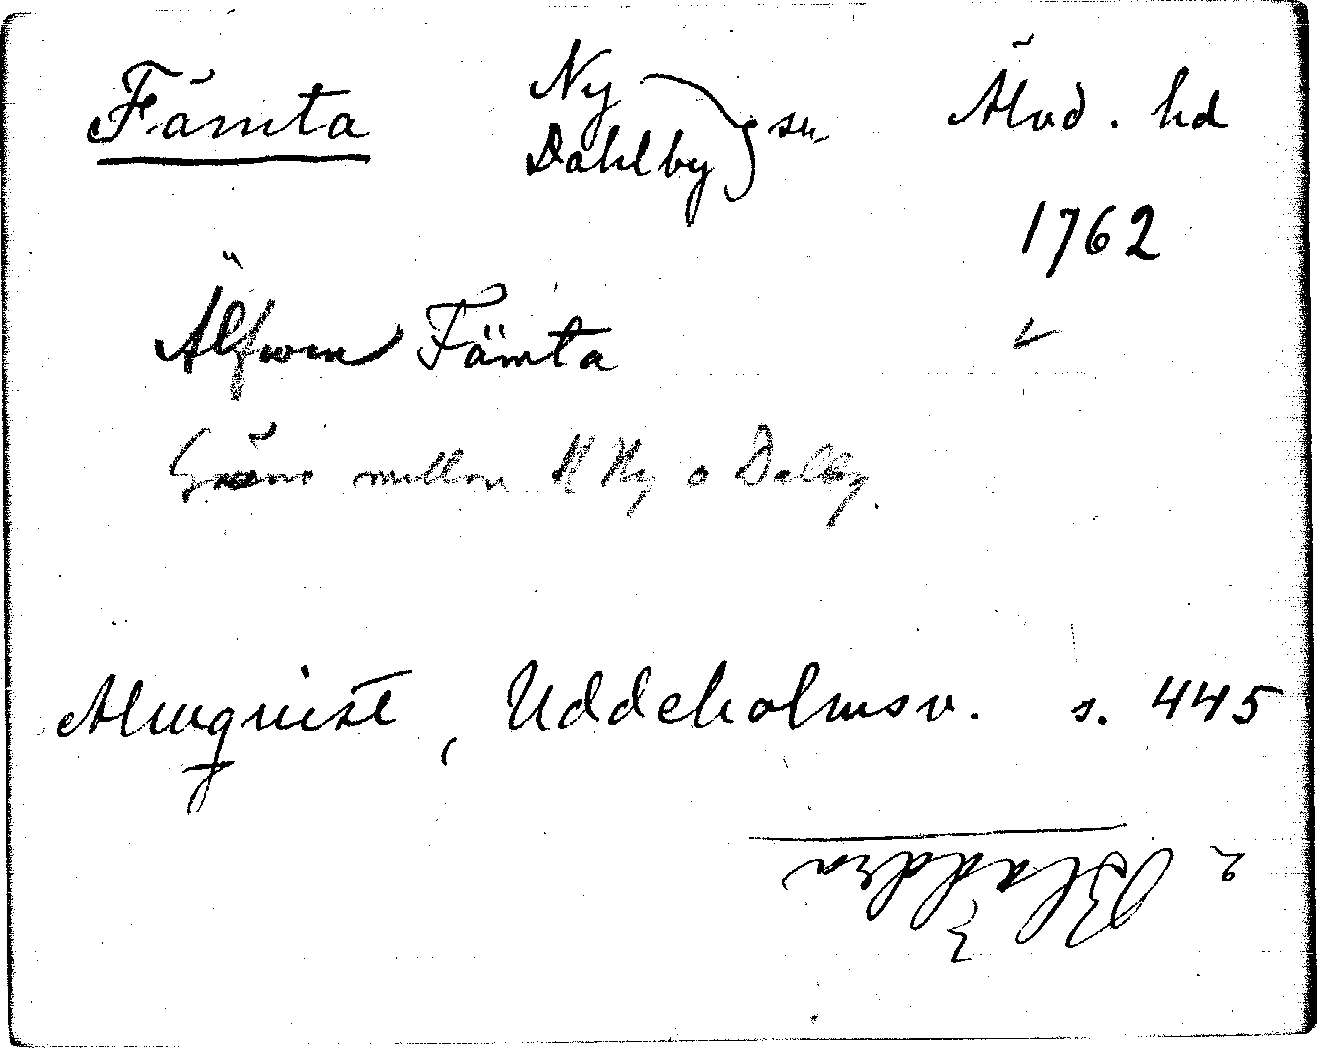 Fämta Ny Dahlby } sn Älvd. hd
1762
Älfwen Fämta
Gräns mellan Ny o Dalby.
Almquist, Uddeholmsv. s. 445
2 Bläddra